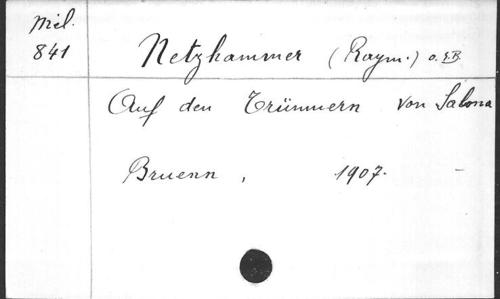 Mil.
841
Netzhammer (Raym.) O.S.B.
Auf den Trümmern von Salona
Bruenn, 1907.